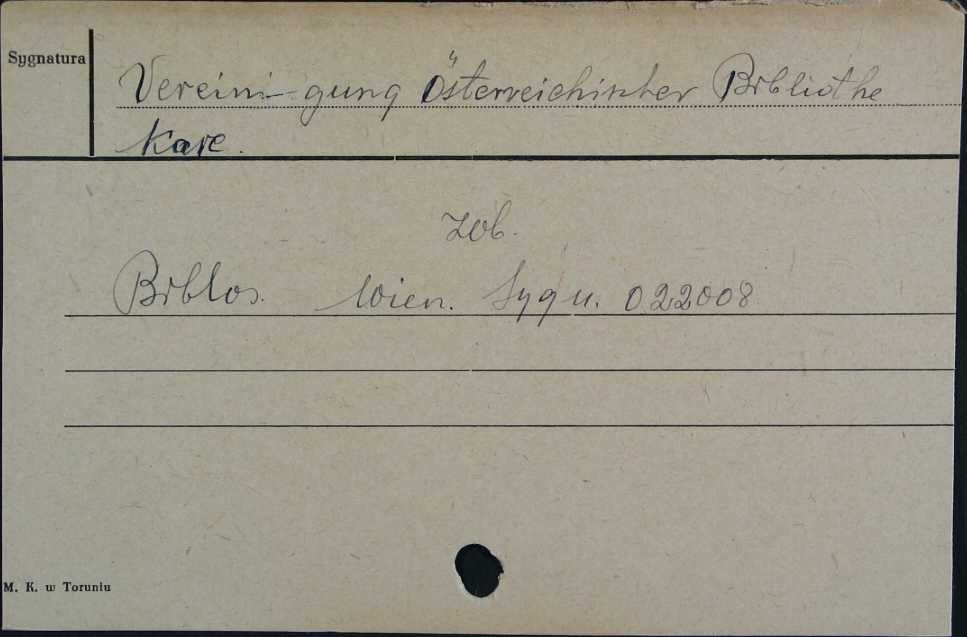 Sygnatura
Vereini-gung Österreichischer Bibliothe
kare.
zob.
Biblos. Wien. Sygn. 022008
M. K. w Toruniu